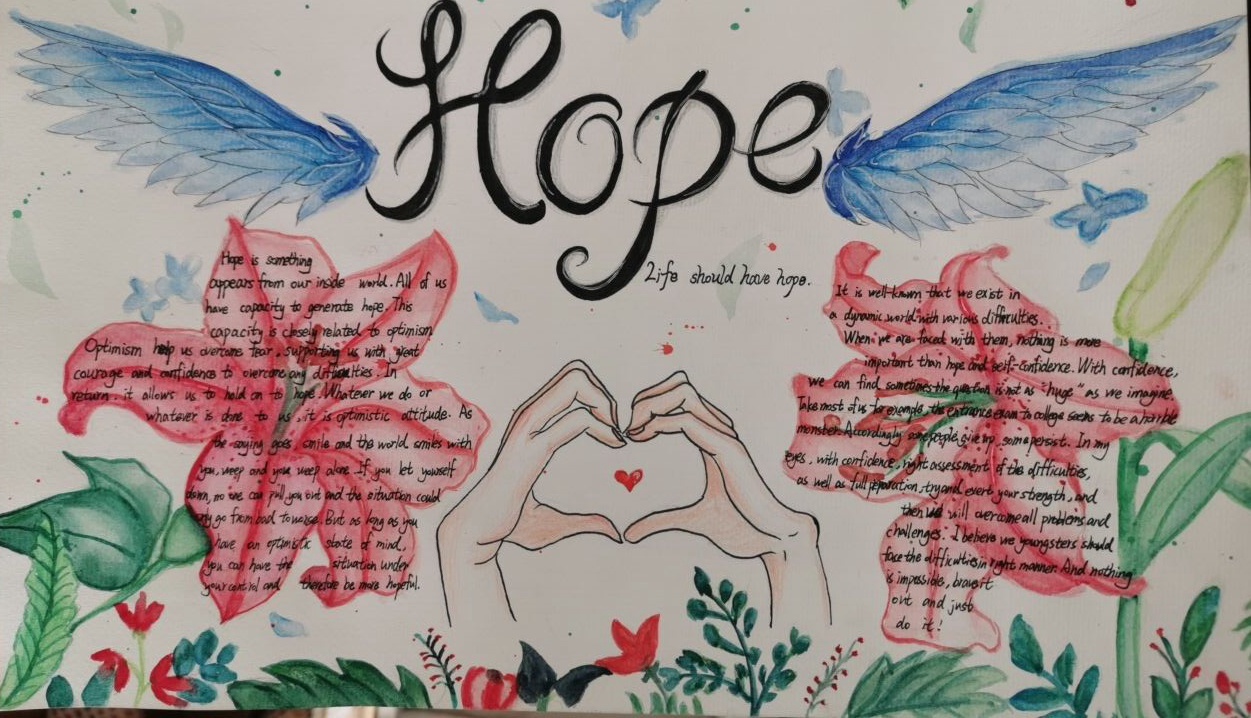 Hope
Life should have hope.
Hope is something
appears from our inside world. All of us
have capacity to generate hope. This
capacity is closely related to optimism
Optimism help us overcome fear, supporting us with great
courage and confidence to overcome any difficulties. In
return, it allows us to hold on to hope. Whatever we do or
whatever is done to us, it is optimistic attitude. As
the saying goes, smile and the world smiles with
you, weep and you weep alone. If you let yourself
down, no one can pull you out and the situation could
only go from bad to worse. But as long as you
have an optimistic state of mind,
you can have the situation under
your control and therefore be more hopeful.
It is well-known that we exist in
a dynamic world with various difficulties.
When we are faced with them, nothing is more
important than hope and self-confidence. With confidence,
we can find sometimes the question is not as "huge" as we imagine.
Take most of us for example, the entrance exam to college seems to be a horrible
monster. Accordingly some people give up, some persist. In my
eyes, with confidence, right assessment of the difficulties,
as well as full preparation, try and exert your strength, and
then we will overcome all problems and
challenges. I believe we youngsters should
face the difficulties in right manner. And nothing
is impossible, brave it
out and just
do it!